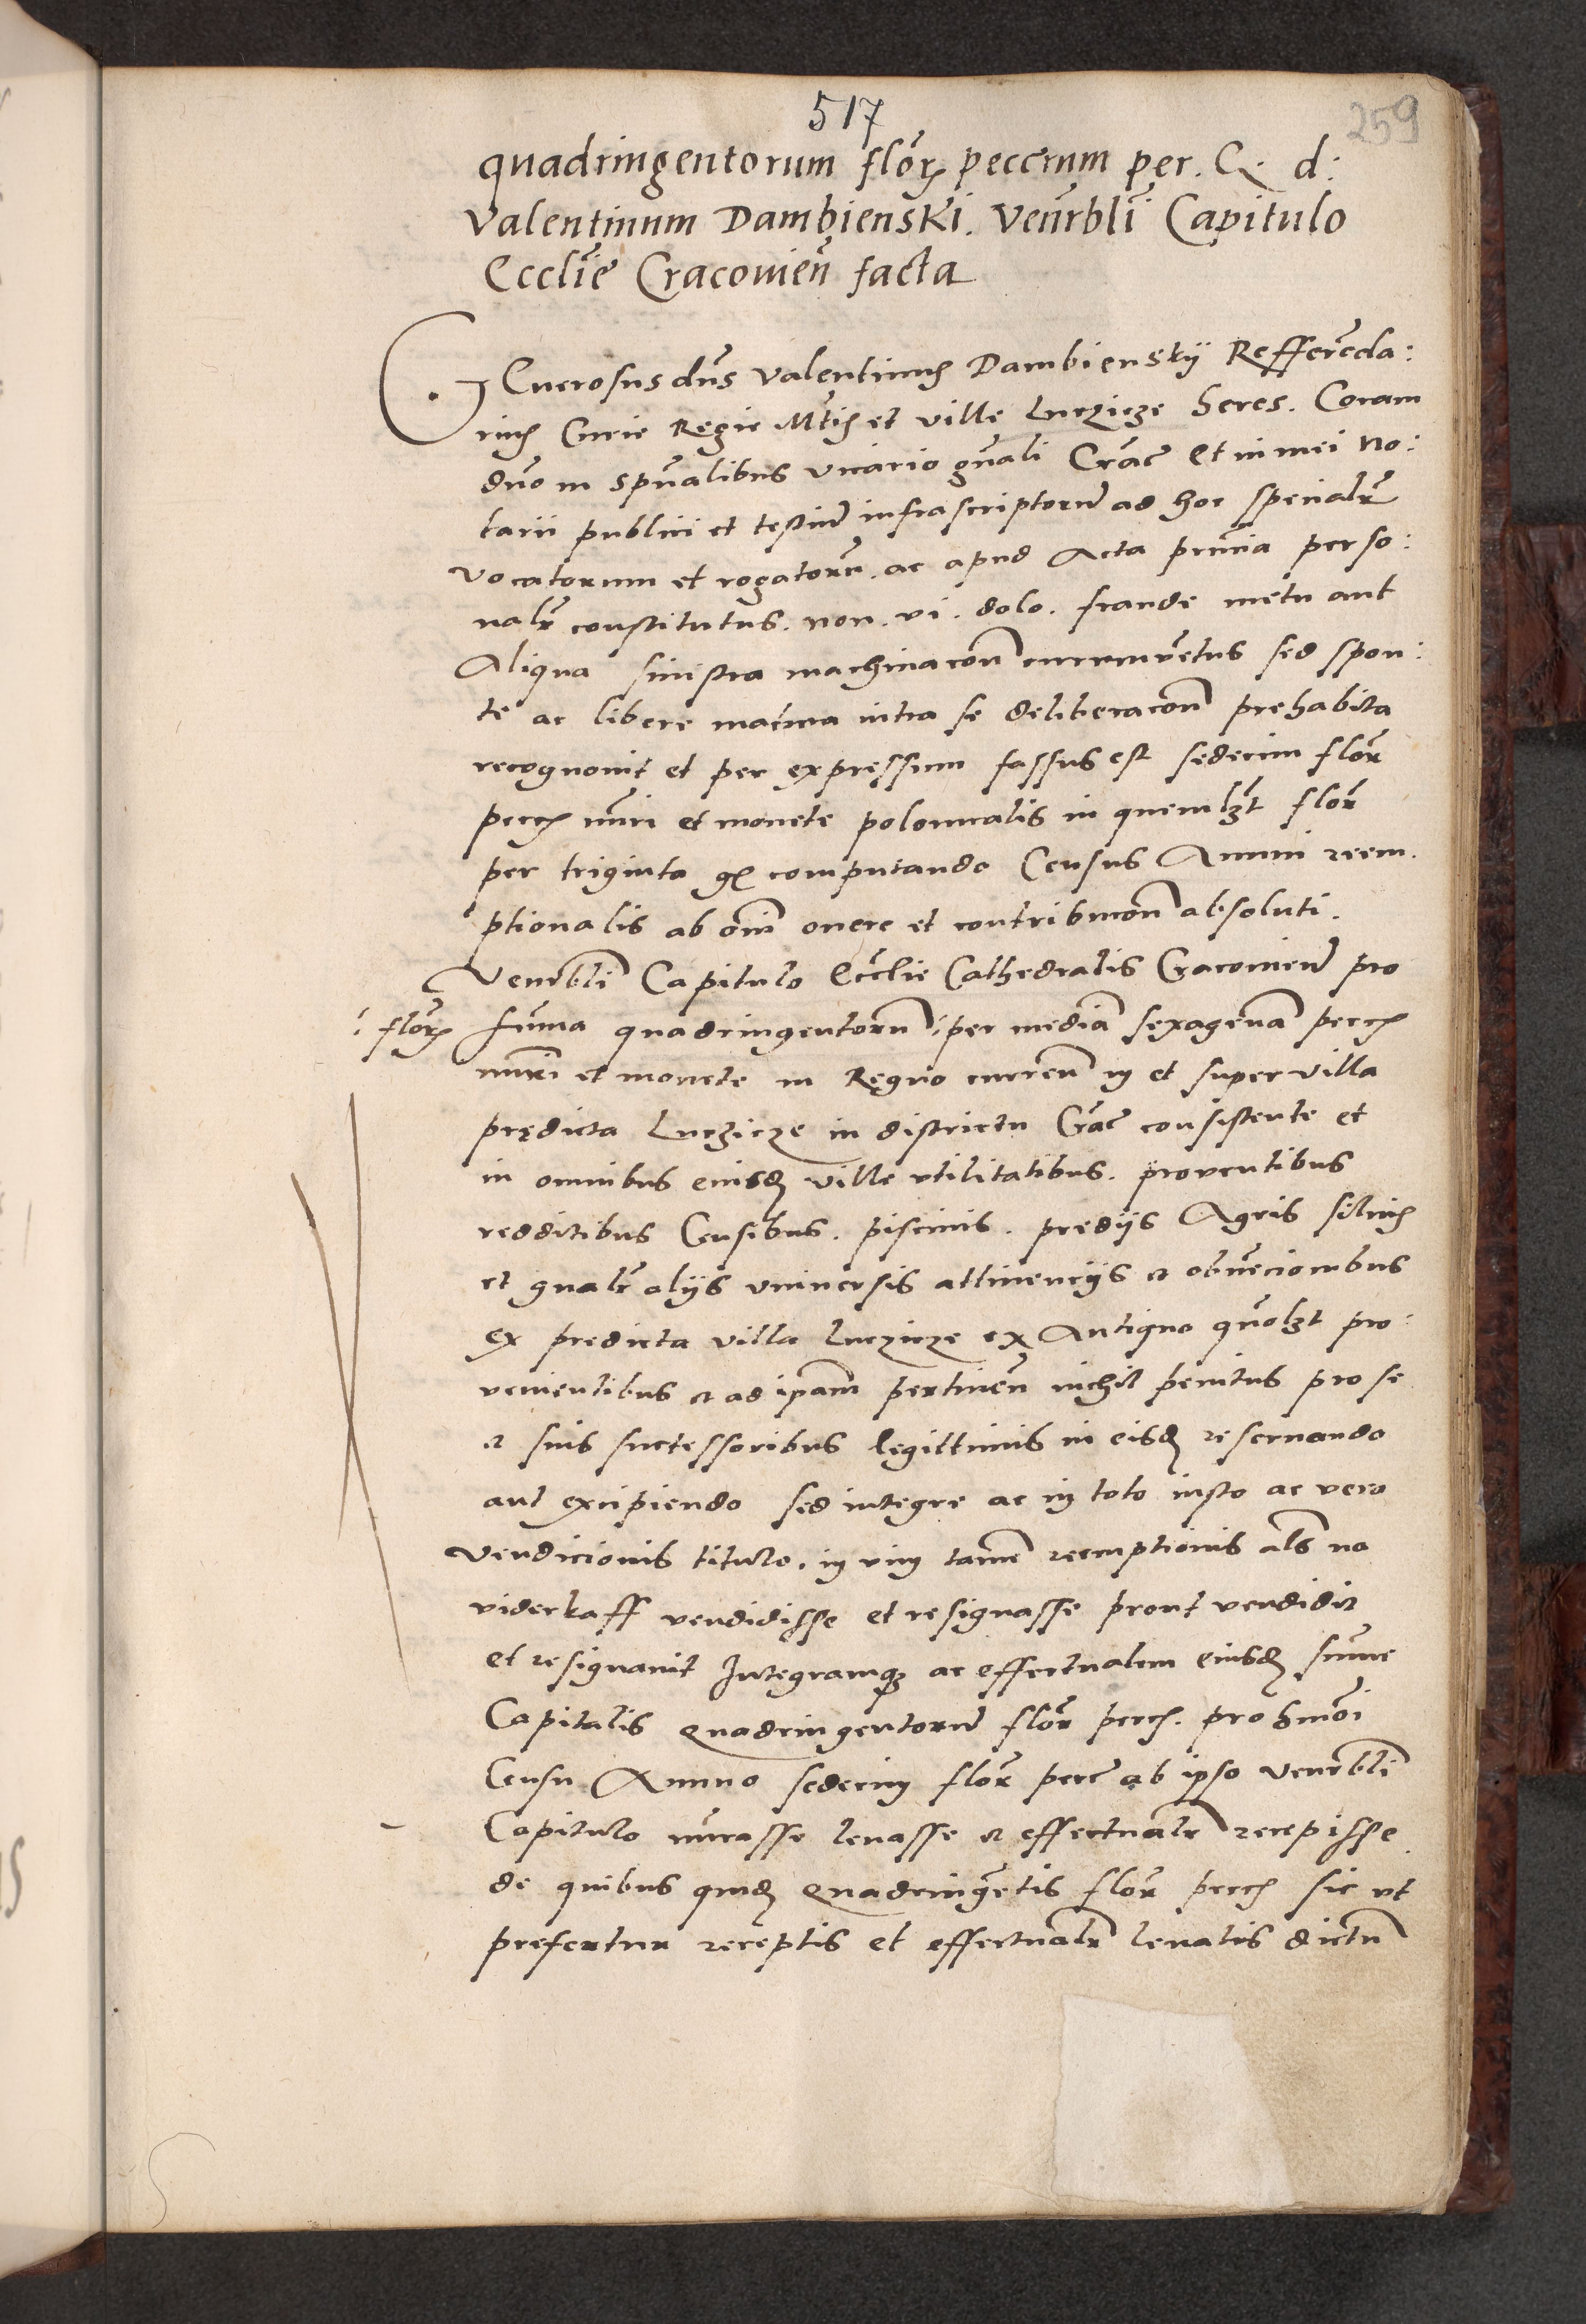 517
259
quadringentorum flor̃ peccrum per. G. d:
Valentinum Dambienski. Venẽrbli Capitulo
Eccl̃ie Cracouieñ facta
Generosus dñs Valentinus Dambienskÿ Refferẽda:
rius Curie Regie Mt̃is et ville Luczicze heres. Coram
dño in spũalibus vicario gñali Crac̃ Et in mei No:
tarii publici et testiũ infrascriptorũ ad hoc specialr̃
vocatorum et rogatorũ. ac apud Acta pñtia perso:
nalr̃ constitutus. non. vi. dolo. fraude metu aut
Aliqua sinistra machinacoñ circumuẽtus sed spon:
te ac libere matura intra se deliberacoñ prehabita
recognouit et per expressum fassus est sedecim flor̃
pecc̃ nũri et monete polonicalis in quemlꝫt flor̃
per triginta gš computando Census Annui reem.
ptionalis ab om̃i onere et contribucoñ absoluti.
Venẽrbli Capitulo Eccl̃ie Cathedralis Cracouieñ pro
: flor̃ sum̃a quadringentorũ :/ per mediã sexagenã pecc̃
nũri et monete in Regno curreñ in et super villa
prędicta Luczicze in districtu Crac̃ consistente et
in omnibus eiusdꝫ ville vtilitatibus. prouentibus
redditibus Censibus. piscinis. prędijs Agris siluis
et gñalr̃ alijs vniuersis attinencijs et obuẽcionibus
ex predicta villa Luczicze ex Antiquo quõlꝫt pro:
uenientibus et ad ip̃am pertineñ nichil penitus pro se
et suis successoribus legittimis in eisdꝫ reseruando
aut excipiendo sed integre ac in toto iusto ac vero
vendicionis titulo. in vim tamẽ reemptionis al̃s na
viderkaff vendidisse et resignasse prout vendidit
et resignauit Integramqꝫ ac effectualem eiusdꝫ sum̃e
Capitalis quadringentorũ flor̃ pecc̃. pro hm̃oi
Censu Annuo sedecim flor̃ pecc̃ ab ipso Venẽrbli
Capitulo nũrasse leuasse et effectualr̃ recepisse
de quibus quidꝫ Quadringẽtis flor̃ pecc̃ sic vt
prefertur receptis et effectualr̃ leuatis dictũ